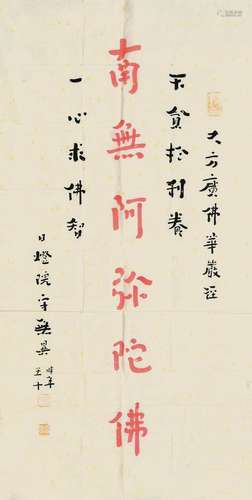 大方廣佛華嚴經
不貪於利養
南無阿彌陀佛
一心求佛智
時年五十